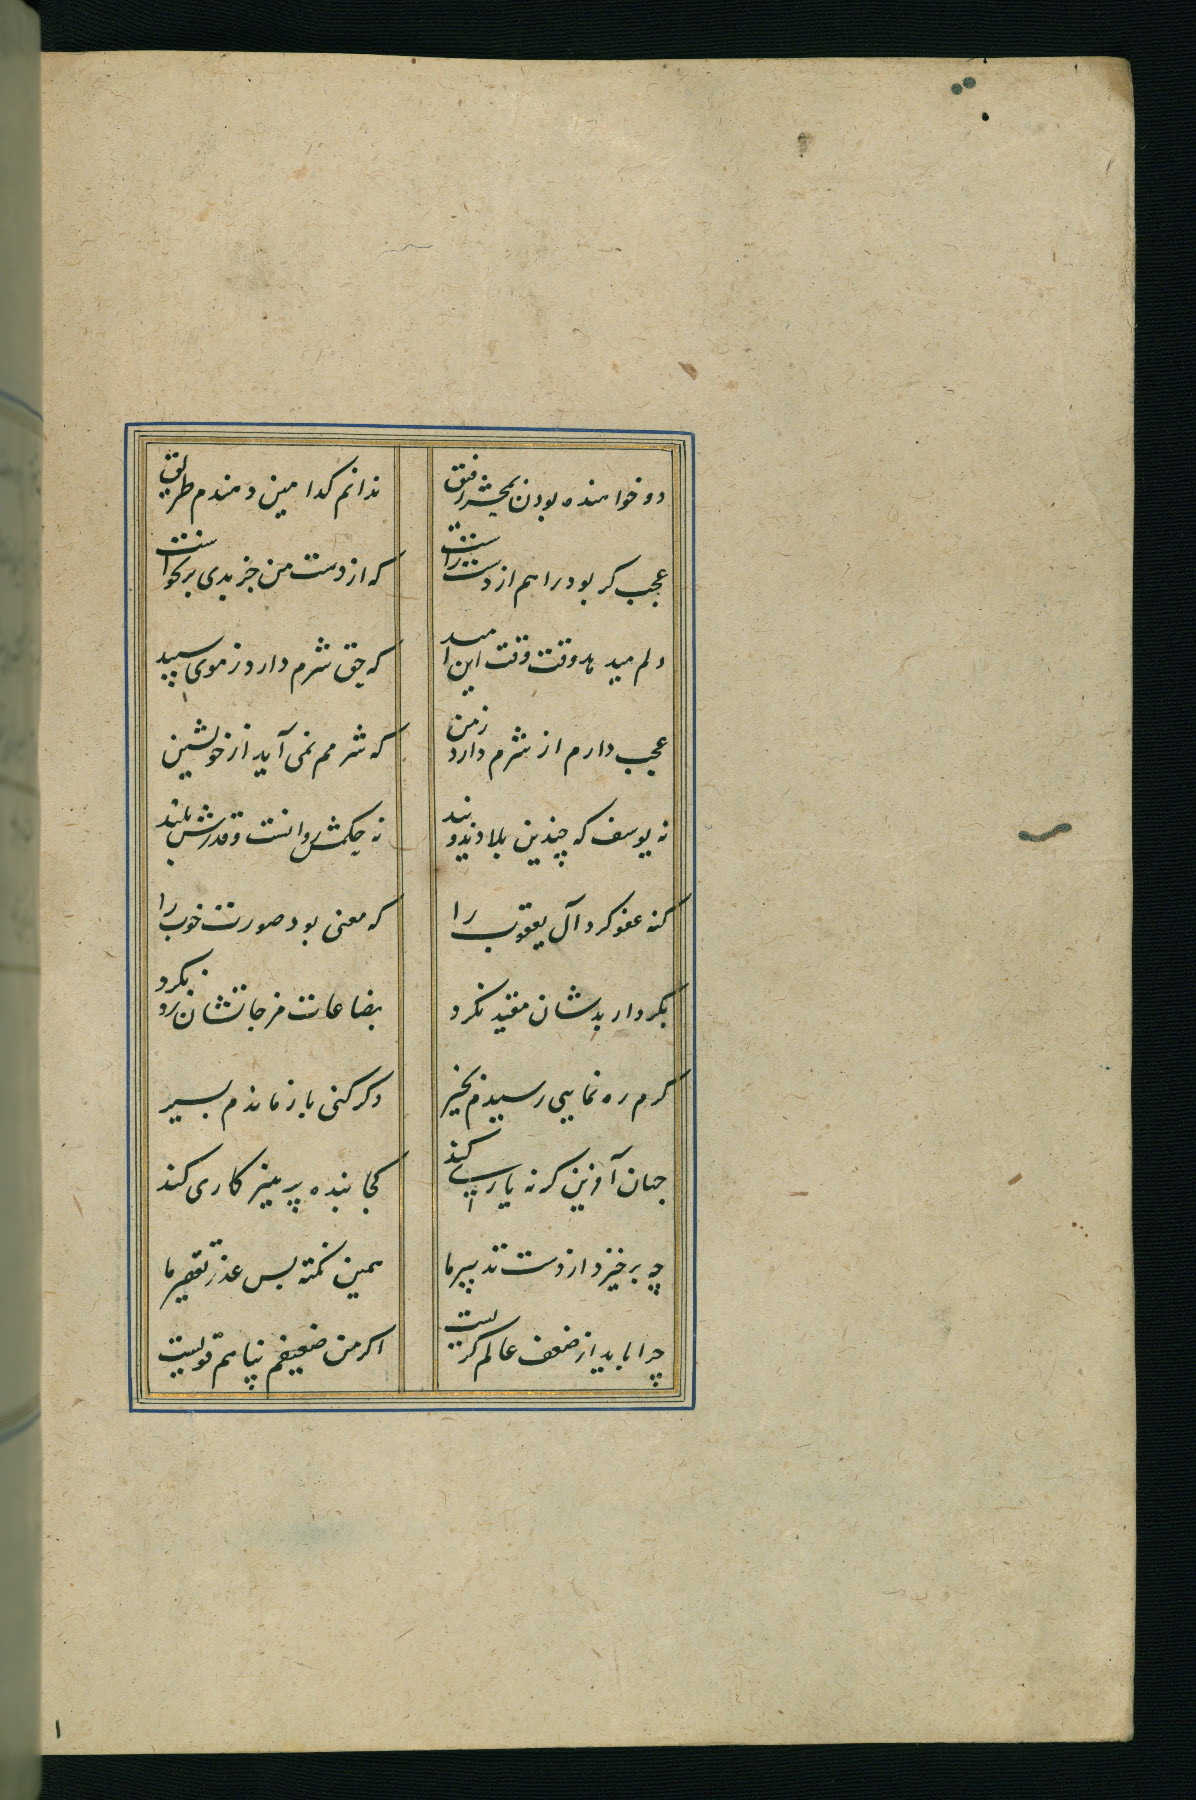 دو خواهنده بودن بمحشر رفیق ندانم کدامین دهندم طریق
عجب کر بود راهم از دست راست که از دست من جز بدی برنخواست
دلم میدهد وقت وقت این امید که حق شرم دارد ز موی سپید
عجب دارم ار شرم دارد ز من که شرمم نمی آید از خویشتن
نه یوسف که چندین بلا دید و بند چه حکمش روانست و قدرش بلند
کنه عفو کرد آل یعقوب را که معنی بود صورت خوب را
بکردار بدشان مقید نکرد بضاعات مزجاتشان رد نکرد
کرم ره نمایی رسیدم بخیر وکر کنی باز ماندم بسیر
جهان آفرین کر نه یاری کند کجا بنده پرهیز کاری کند
چه برخیزد از دست تدبیر ما همین نکته بس عذر تقصیر ما
چرا باید از ضعف عالم کریست اکر من ضعیفم پناهم قویست
۱